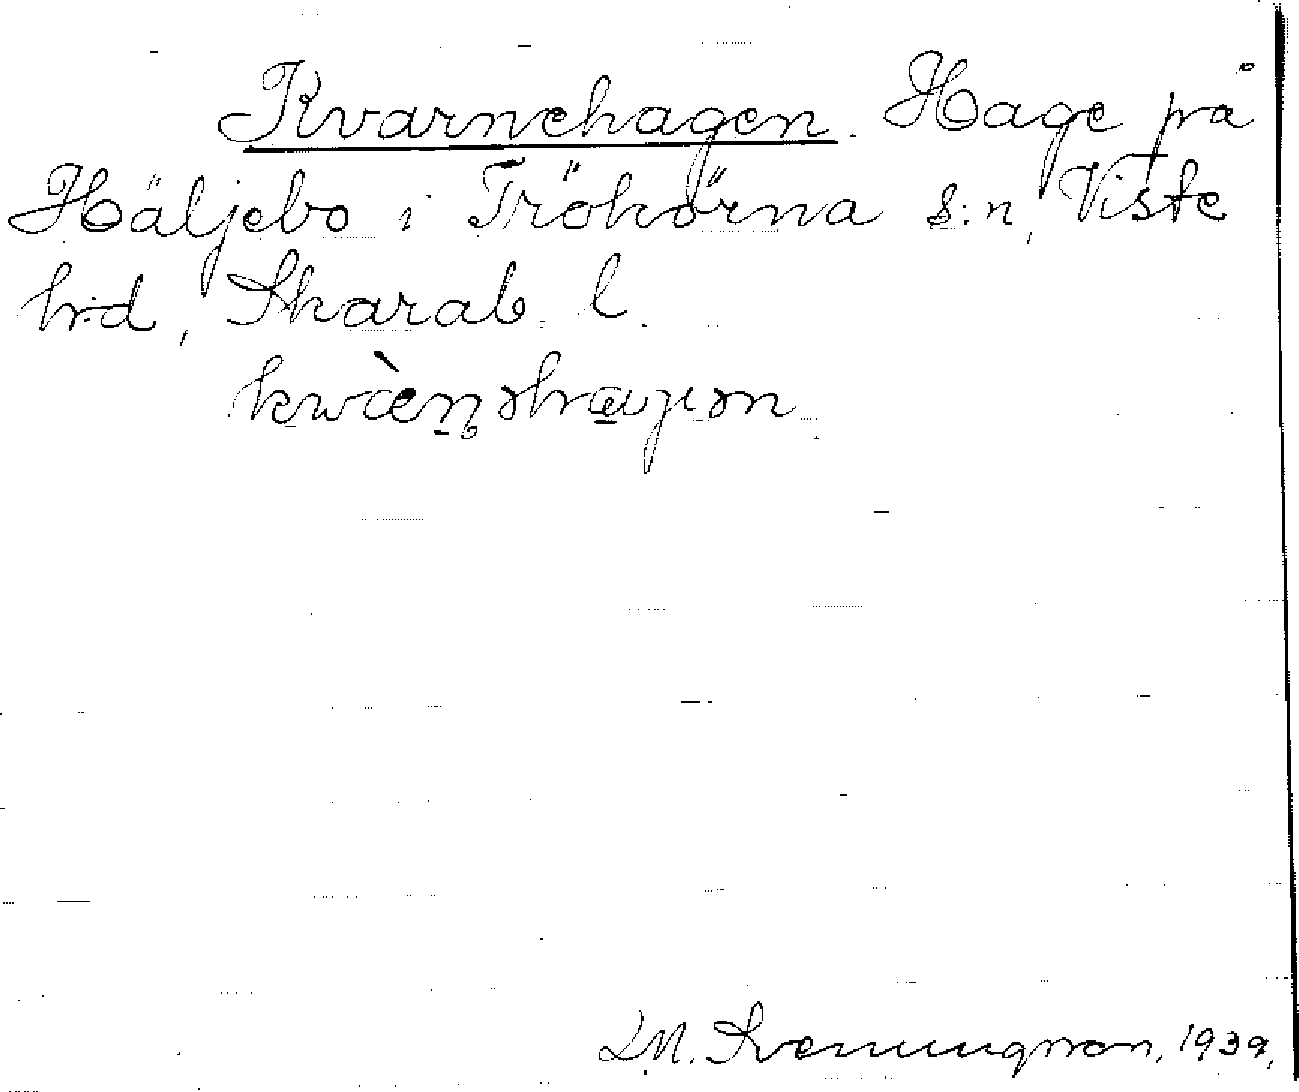 Kvarnehagen. Hage på
Häljebo i Trökörna s:n, Viste
hd, Skarab. l.
kwæ̀ṇəhɑgən
L M. Svenungsson, 1939.